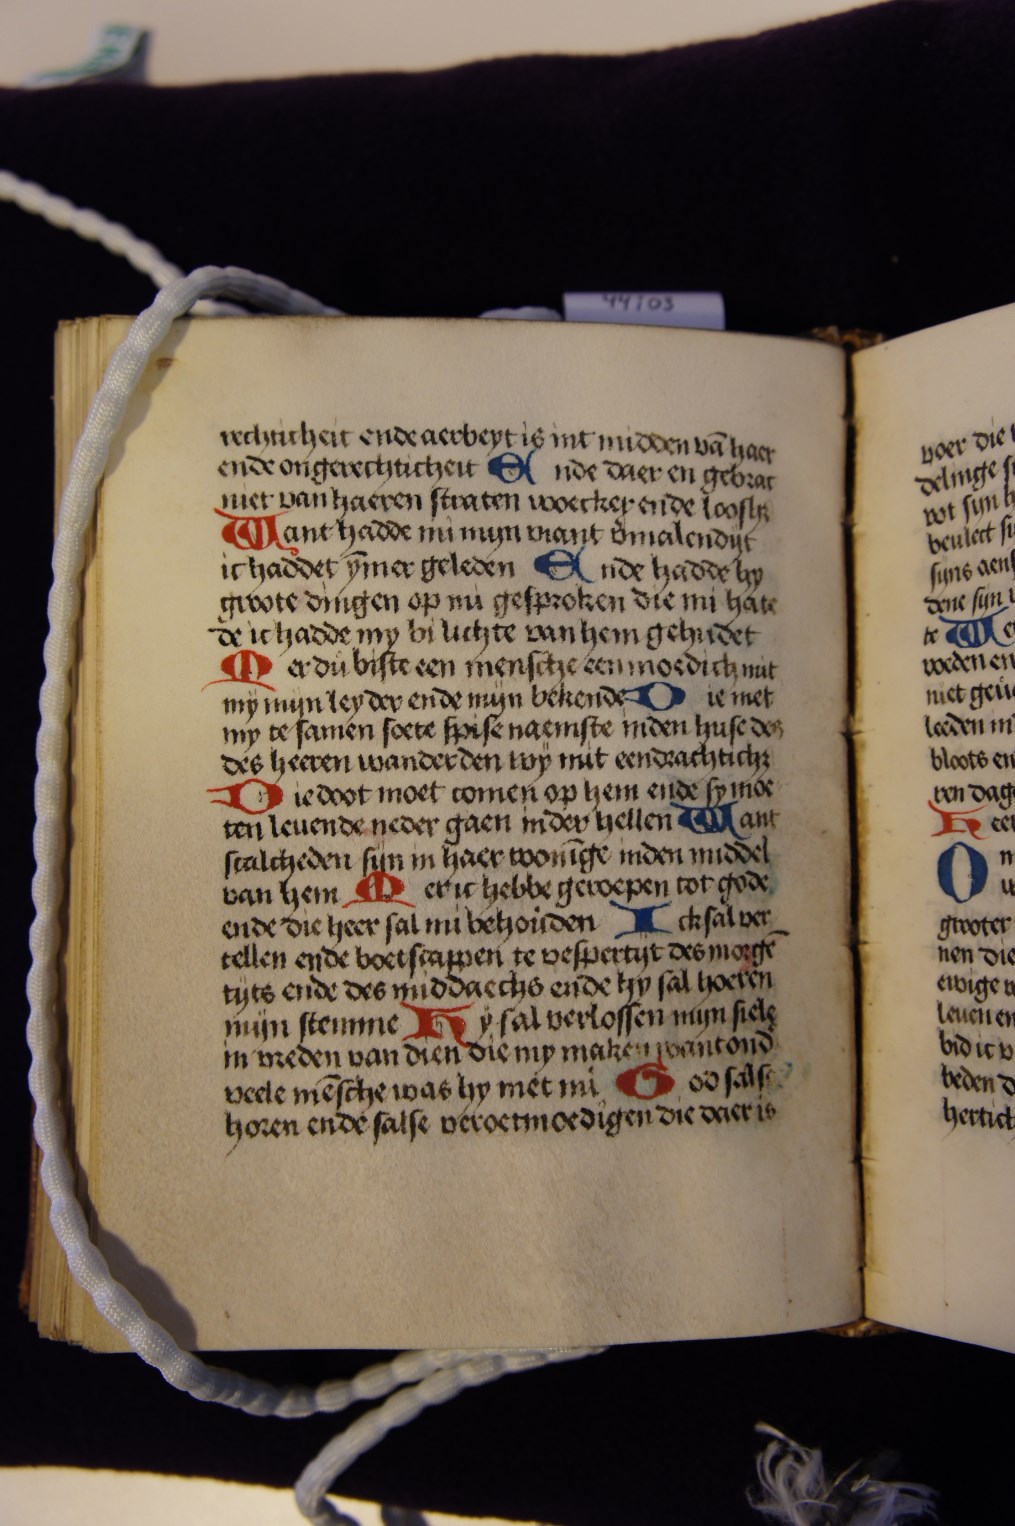 44103
rechticheit ende aerbeyt is int midden vā haer
ende ongerechticheit Ende daer en gebrac
niet van haeren straten woecker ende
Want hadde mi mijn viant vmalendijt
ic haddet ymer geleden Ende hadde hy
groote dingen op mi gesproken die mi hate
de ic hadde my bi lichte van hem gehudet
Mer du biste een mensche eenmoedich mit
my mijn leyder ende mijn bekende Die met
my te samen soete spise naemste inden huse des
des heeren wanderden wy mit
Die doot moet comen op hem ende sy moe
ten leuende neder gaen inder hellen Want
scalcheden sijn in haer wonīge inden middel
van hem Mer ic hebbe geroepen tot gode
ende die heer sal mi behouden Ick sal ver
tellen ende boetscappen te vespertijt des morgē
tijts ende des middaechs ende hy sal hoeren
mijn stemme Hy sal verlossen mijn siele
in vreden van dien die my maken want ond
veele mēsche was hy met mi God salse
horen ende salse veroetmoedigen die daer is
voer die
delinge
vot sijn
beulect
sijns
dene sijn
te
voeden en
niet
leeden
bloots en
ren dage
Heer
O
grooter
nen die
ewige
leuen en
bid ic
beden
hertich